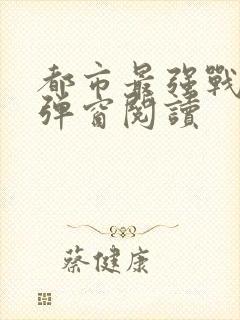 都市最强戰
彈窗閱讀
蔡健康